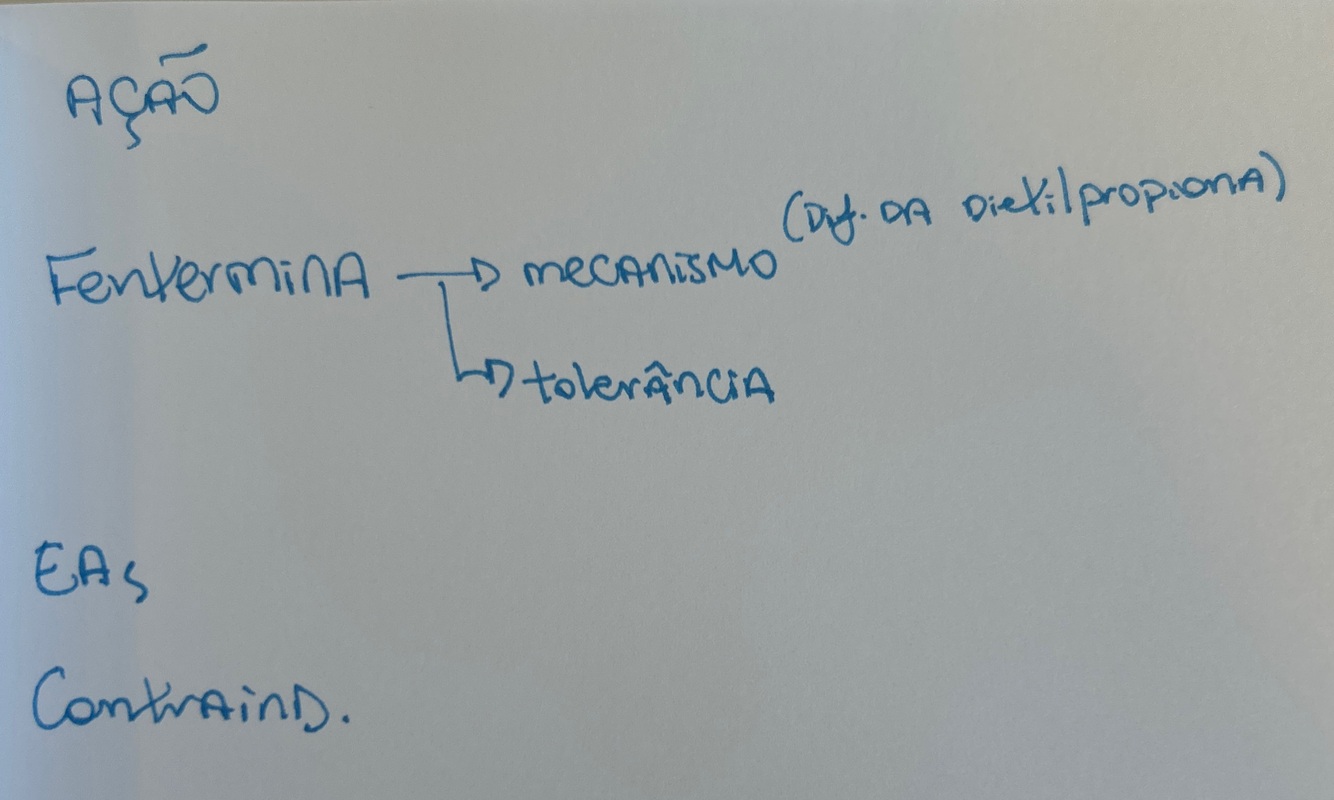 AÇÃO
Fentermina → mecanismo (Dif. da Dietilpropiona)
→ tolerância
EAs
Contraind.